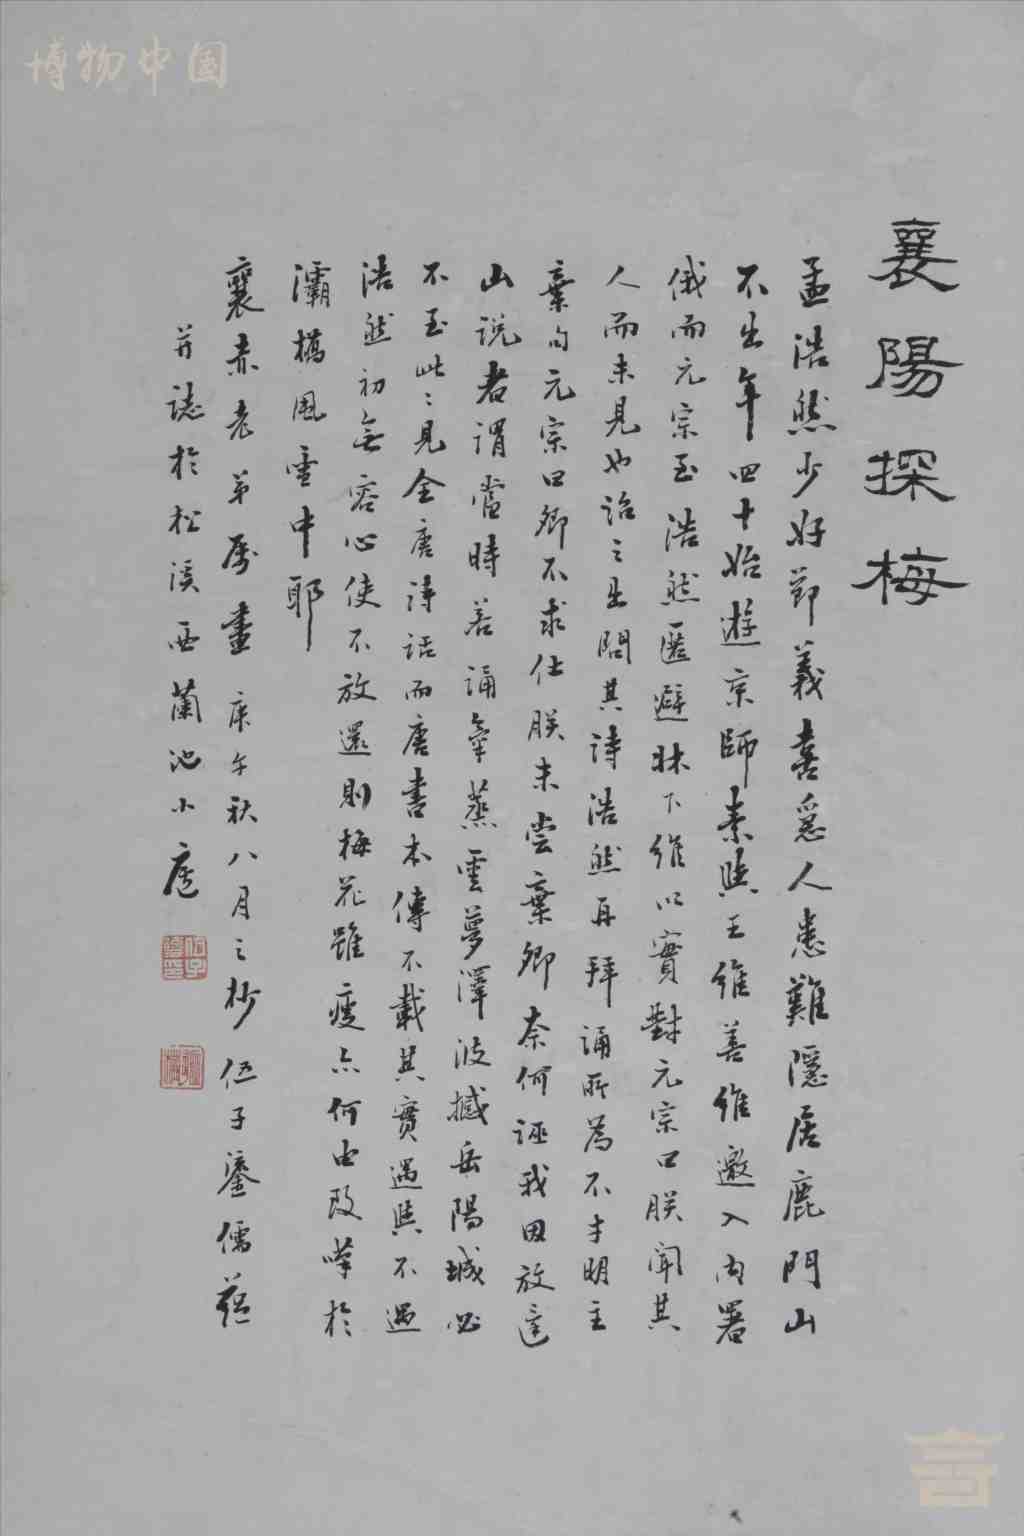 博物中国
襄陽探梅
孟浩然少好節義喜急人患難隱居鹿門山
不出年四十始遊京師素與王維善維邀入內署
俄而元宗至浩然匿避牀下維以實對元宗曰朕聞其
人而未見也詔之出問其詩浩然再拜誦所為不才明主
棄句元宗曰卿不求仕朕未嘗棄卿奈何誣我因放還
山說者謂當時若誦氣蒸雲夢澤波撼岳陽城必
不至此〻見全唐詩話而唐書本傳不載其實遇與不遇
浩然初無容心使不放還則梅花雖瘦亦何由改嘆於
灞橋風雪中耶
襄赤老弟屬畫 庚午秋八月之杪 伍子鎏儒蘊
并誌於松溪西蘭池小